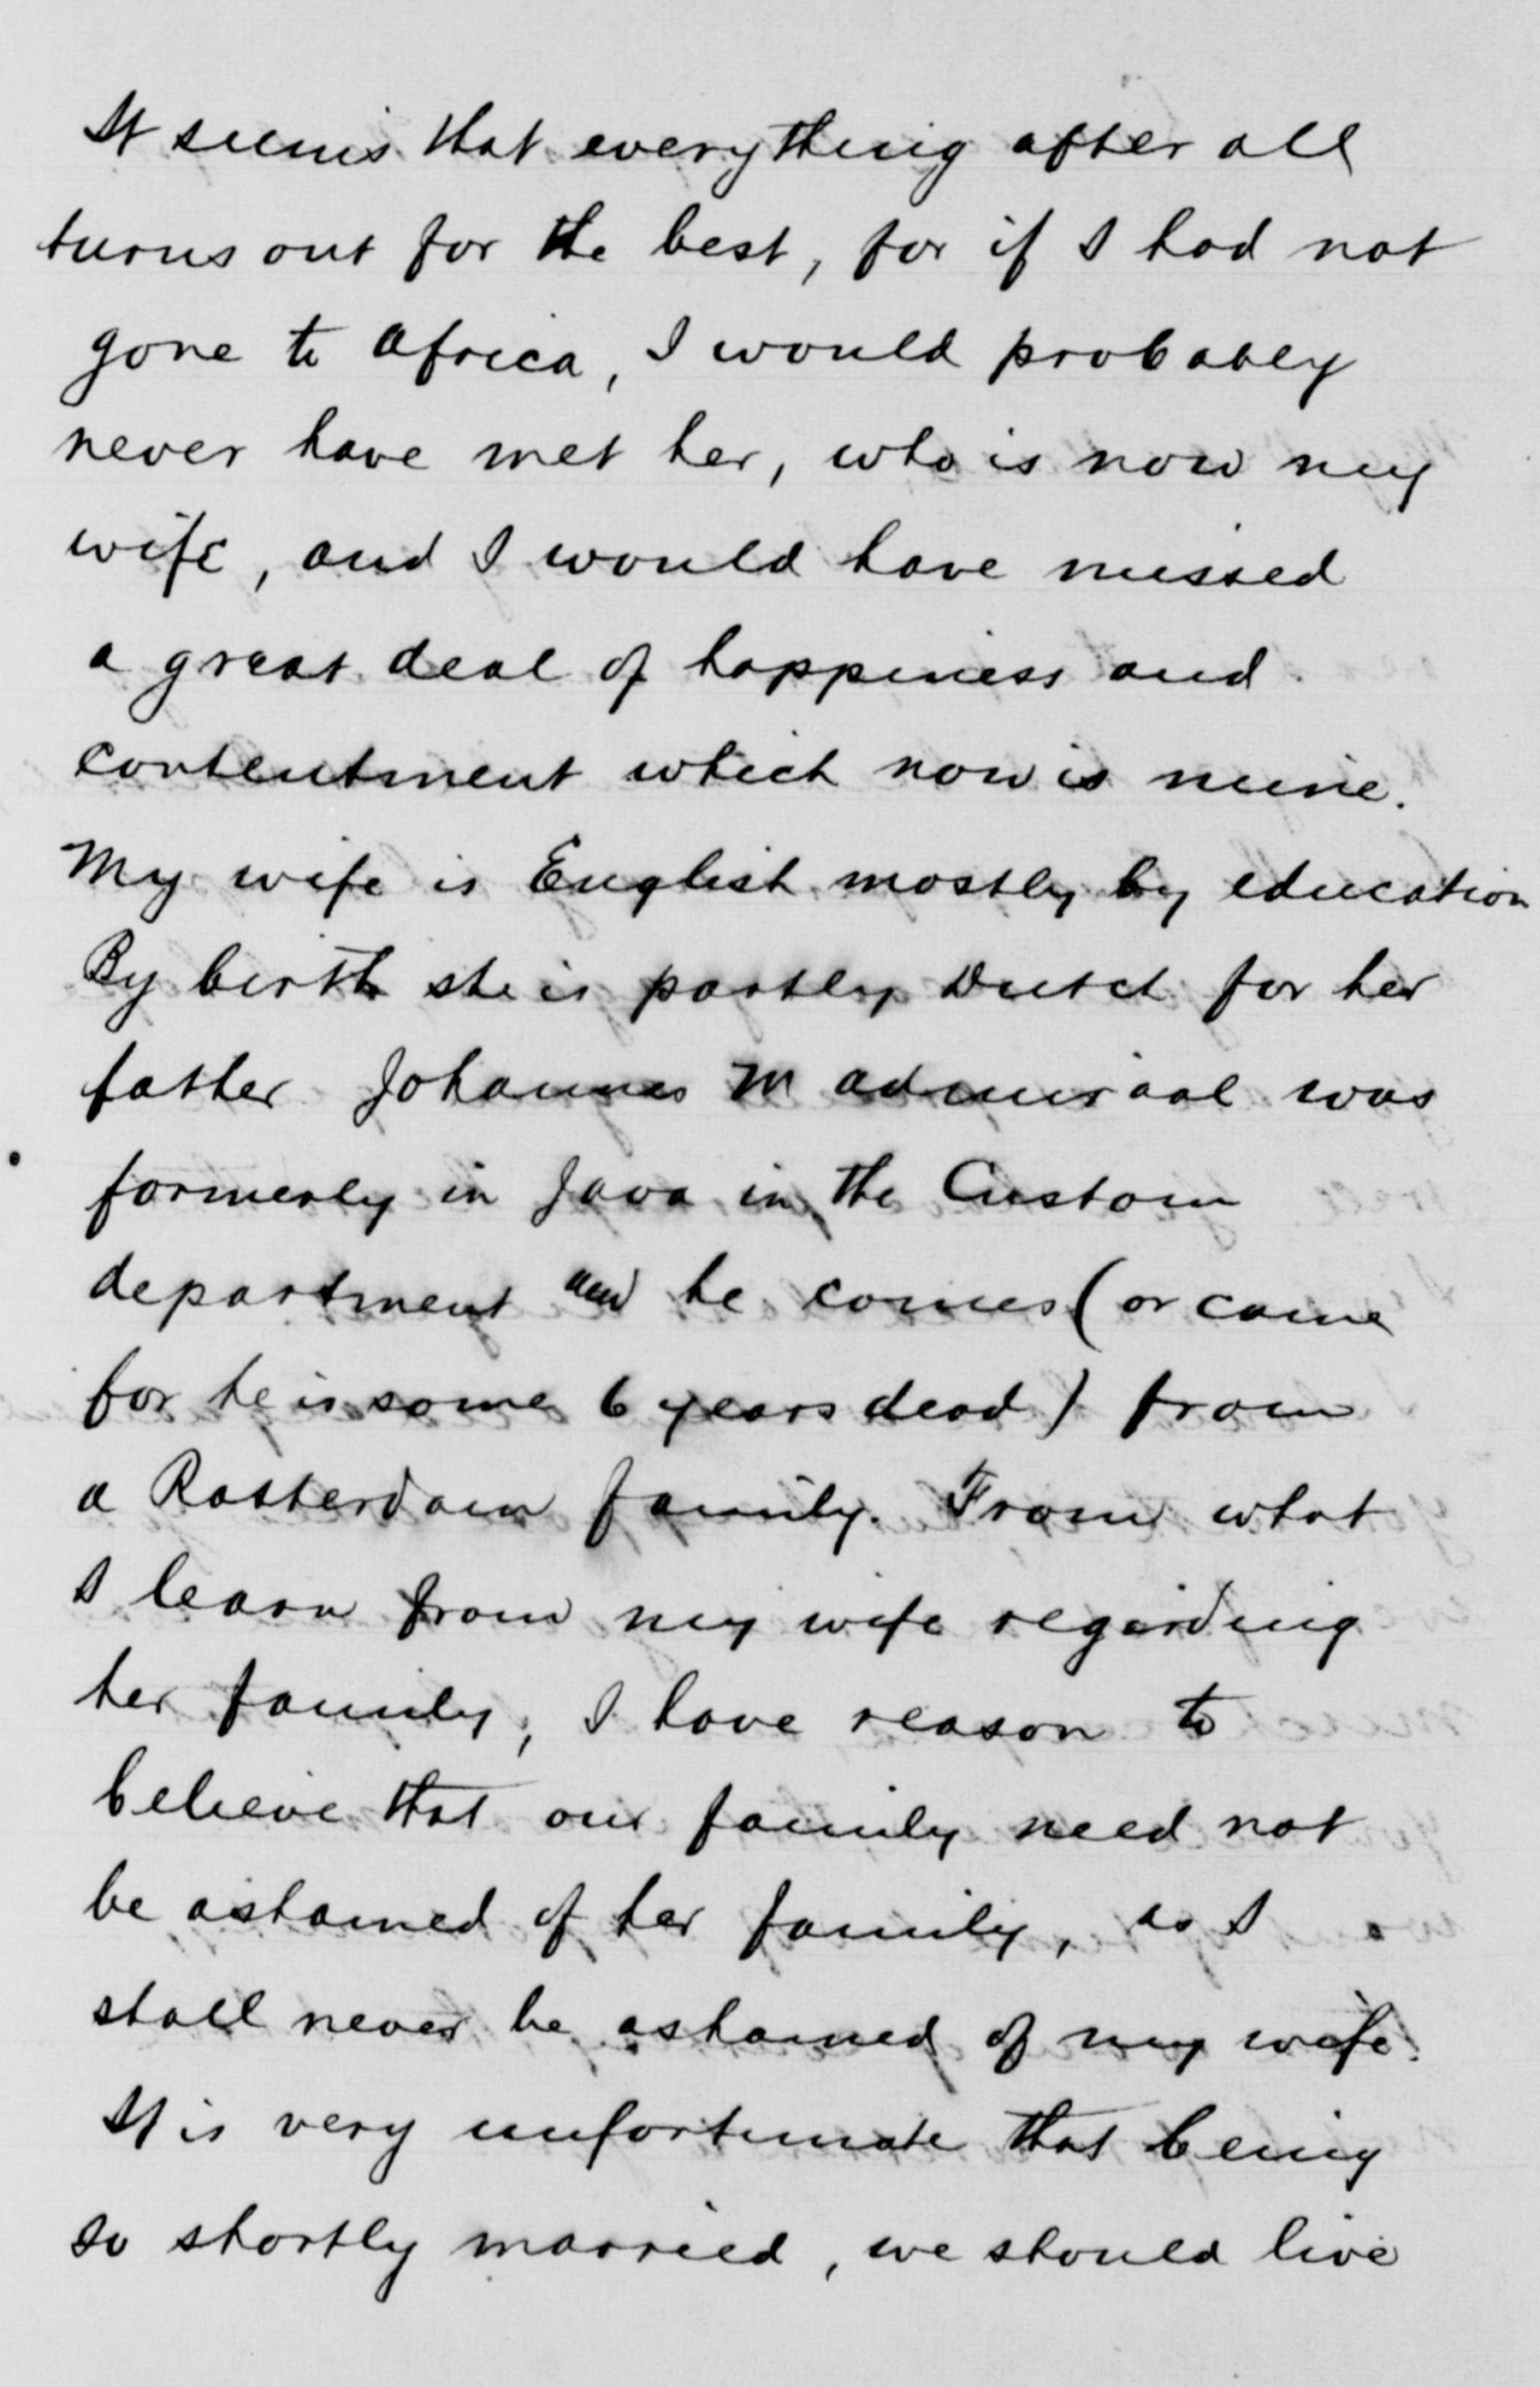 It seems that everything after all
turns out for the best, for if I had not
gone to Africa, I would probably
never have met her, who is now my
wife, and I would have missed
a great deal of happiness and
contentment which now is mine.
My wife is English mostly by education
By birth she is partly Dutch for her
father Johannes M Admiraal was
formerly in Java in the Custom
department and he comes (or came
for he is some 6 years dead) from
a Rotterdam family. From what
I learn from my wife regarding
her family, I have reason to
believe that our family need not
be ashamed of her family, as I
shall never be ashamed of my wife.
It is very unfortunate that being
so shortly married, we should live